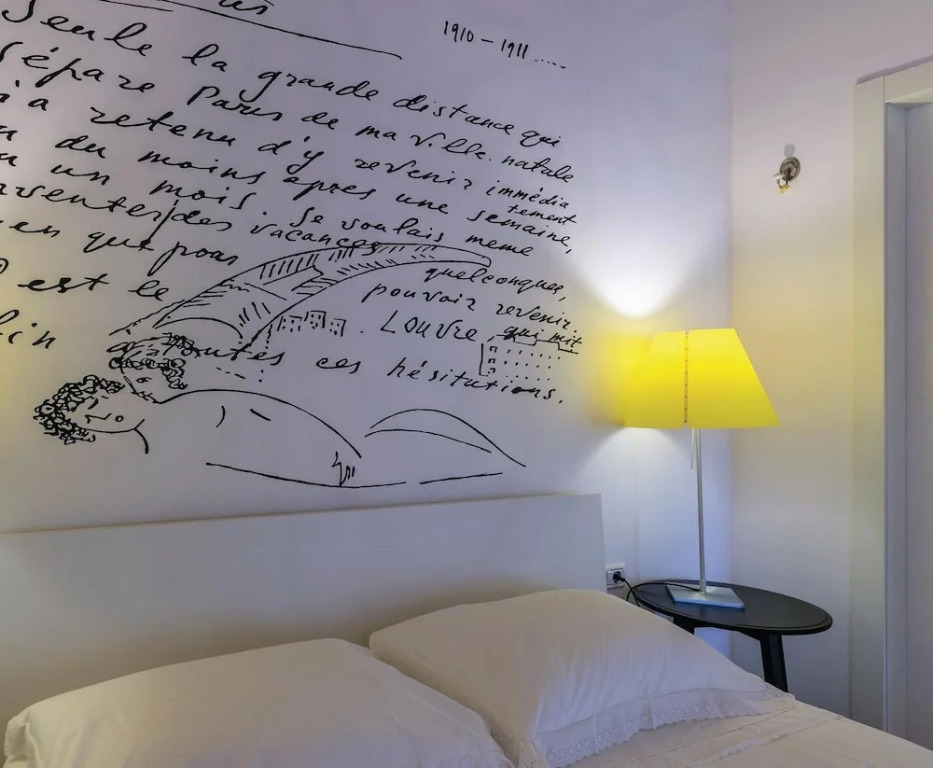 1910 – 1911 .....
Seule la grande distance qui
sépare Paris de ma ville natale
a retenu d'y revenir immédia
tement
du moins après une semaine,
un mois. Je voulais même
des vacances quelconques,
en que pour pouvoir revenir.
est le Louvre, qui mit
fin à toutes ces hésitations.